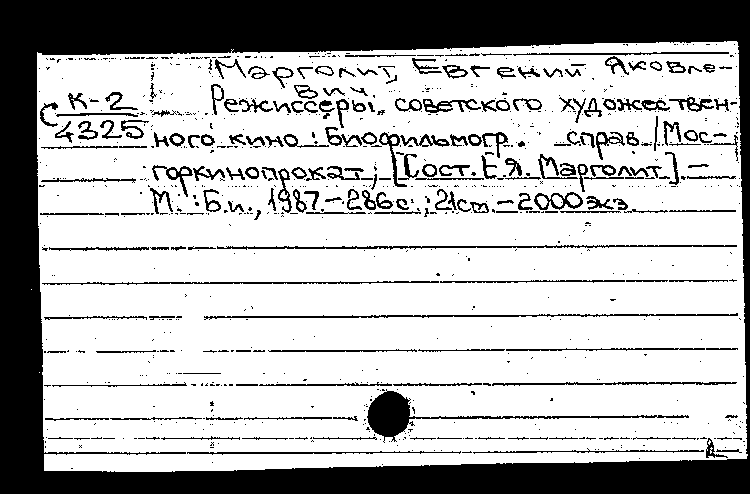 Марголит, Евгений Яковле-
вич.
С К-2
4325
Режиссеры советского художествен-
ного кино: Биофильмогр. справ / Мос-
горкинопрокат; [Сост. Е.Я. Марголит]. –
М.: Б.и., 1987. – 286 с.; 21 см. – 2000 экз.